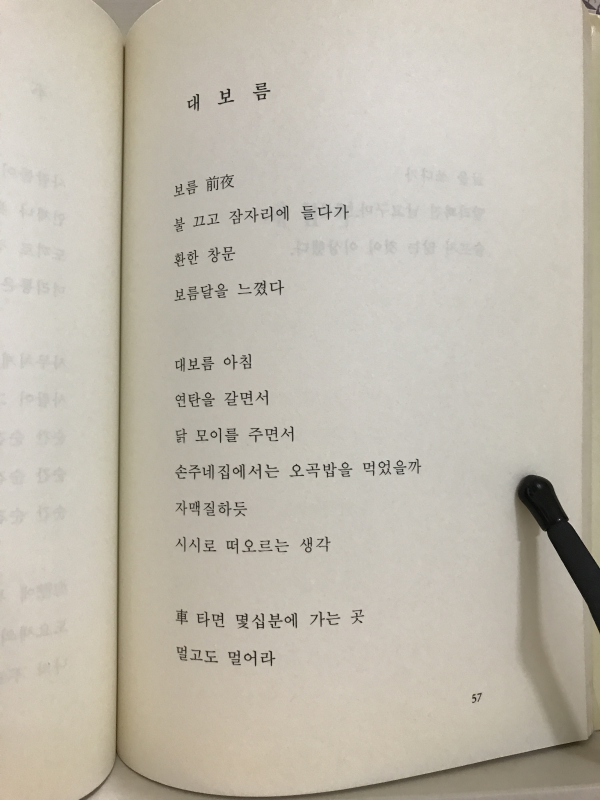 대보름
보름 前夜
불 끄고 잠자리에 들다가
환한 창문
보름달을 느꼈다
대보름 아침
연탄을 갈면서
닭 모이를 주면서
손주네집에서는 오곡밥을 먹었을까
자맥질하듯
시시로 떠오르는 생각
車 타면 몇십분에 가는 곳
멀고도 멀어라
57